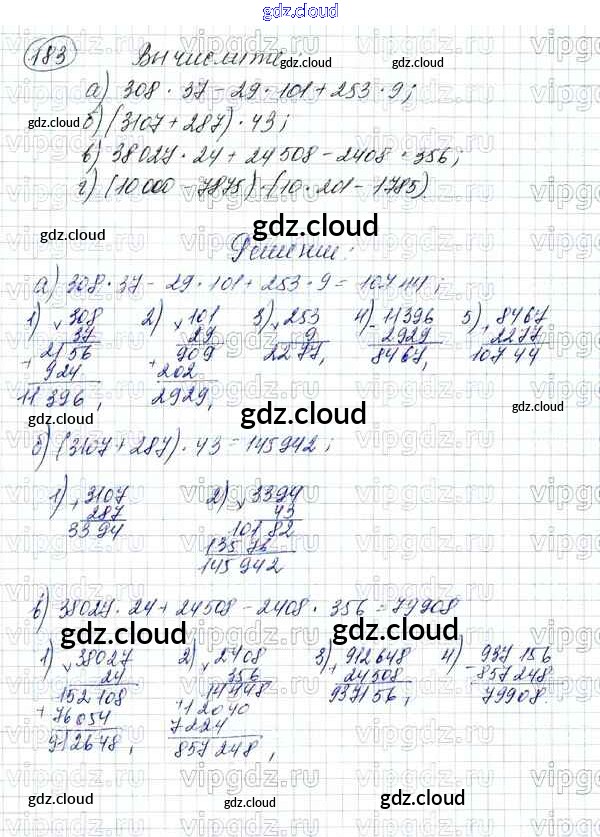 gdz.cloud
183 Вычислите:
а) 308 · 37 - 29 · 101 + 253 · 9;
gdz.cloud gdz.cloud
б) (3107 + 287) · 43;
в) 38027 · 24 + 24508 - 2408 · 356;
г) (10000 - 7875) · (10 · 201 - 1785).
gdz.cloud gdz.cloud
Решение:
а) 308 · 37 - 29 · 101 + 253 · 9 = 10744;
1) × 308 2) × 101 3) × 253 4) - 11396 5) + 8467
37 29 9 2929 2277
2156 909 2277, 8467, 10744
+ 924 + 202
11396, 2929,
gdz.cloud gdz.cloud gdz.cloud
б) (3107 + 287) · 43 = 145942;
1) + 3107 2) × 3394
287 43
3394 10182
13576
145942
gdz.cloud gdz.cloud
в) 38027 · 24 + 24508 - 2408 · 356 = 79908
gdz.cloud gdz.cloud
1) × 38027 2) × 2408 3) + 912648 4) - 937156
24 356 24508 857248
152108 14448 937156, 79908.
+ 76054 + 12040
912648, 7224
857248,
gdz.cloud gdz.cloud gdz.cloud